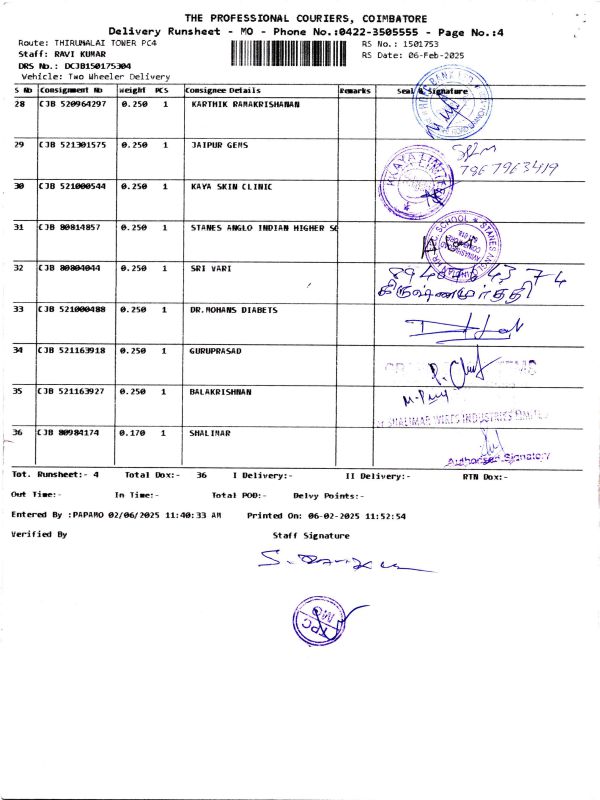 THE PROFESSIONAL COURIERS, COIMBATORE
Delivery Runsheet - MO - Phone No.:0422-3505555 - Page No.:4
Route: THIRUMALAI TOWER PC4
RS No.: 1501753
Staff: RAVI KUMAR
RS Date: 06-Feb-2025
DRS No.: DCJB150175304
Vehicle: Two Wheeler Delivery
S No Consignment No Weight PCS Consignee Details Remarks Seal & Signature
28 CJB 520964297 0.250 1 KARTHIK RAMAKRISHANAN
29 CJB 521301575 0.250 1 JAIPUR GEMS
7967963419
30 CJB 521000544 0.250 1 KAYA SKIN CLINIC
31 CJB 80814857 0.250 1 STANES ANGLO INDIAN HIGHER SC
32 CJB 80804044 0.250 1 SRI VARI
கிருஷ்ணமூர்த்தி
33 CJB 521000488 0.250 1 DR.MOHANS DIABETS
34 CJB 521163918 0.250 1 GURUPRASAD
35 CJB 521163927 0.250 1 BALAKRISHNAN
SHALIMAR WIRES INDUSTRIES LIMITED
36 CJB 80984174 0.170 1 SHALIMAR
Authorised Signatory
Tot. Runsheet:- 4 Total Dox:- 36 I Delivery:- II Delivery:- RTN Dox:-
Out Time:- In Time:- Total POD:- Delvy Points:-
Entered By :PAPAMO 02/06/2025 11:40:33 AM Printed On: 06-02-2025 11:52:54
Verified By Staff Signature
TPC
MO